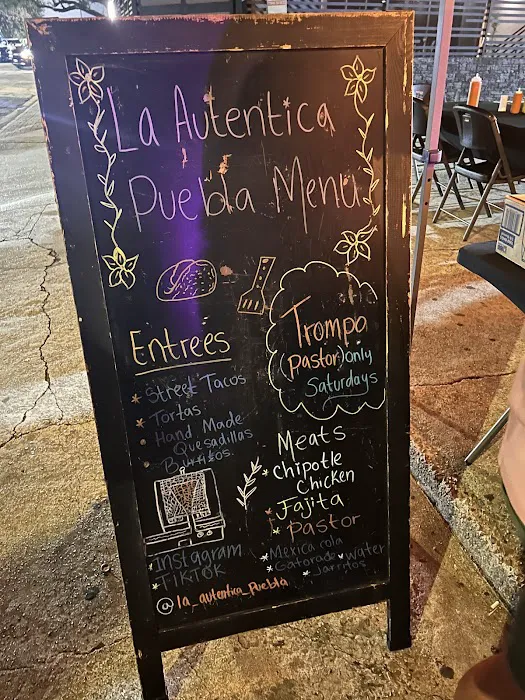 La Autentica
Puebla Menu
Entrees
* Street Tacos
* Tortas
* Hand Made
Quesadillas
* Burritos.
Trompo
(Pastor) only
Saturdays
Meats
* Chipotle
Chicken
* Fajita
* Pastor
* Mexica cola
* Gatorade * Water
* Jarritos
* Instagram
* TikTok
@la_autentica_puebla